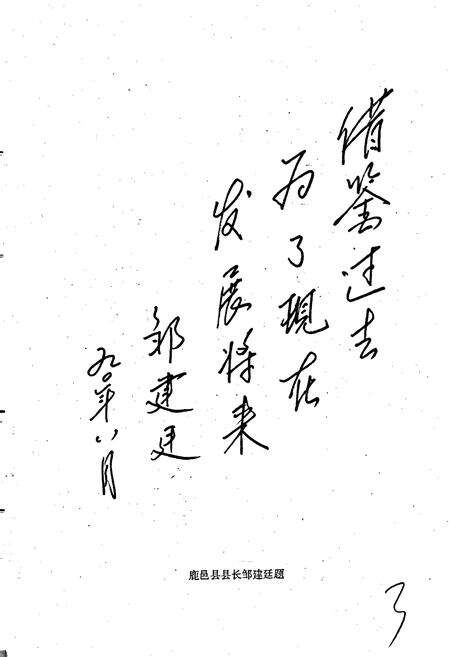 借鉴过去
为了现在
发展将来
邹建廷
九〇年八月
鹿邑县县长邹建廷题
3